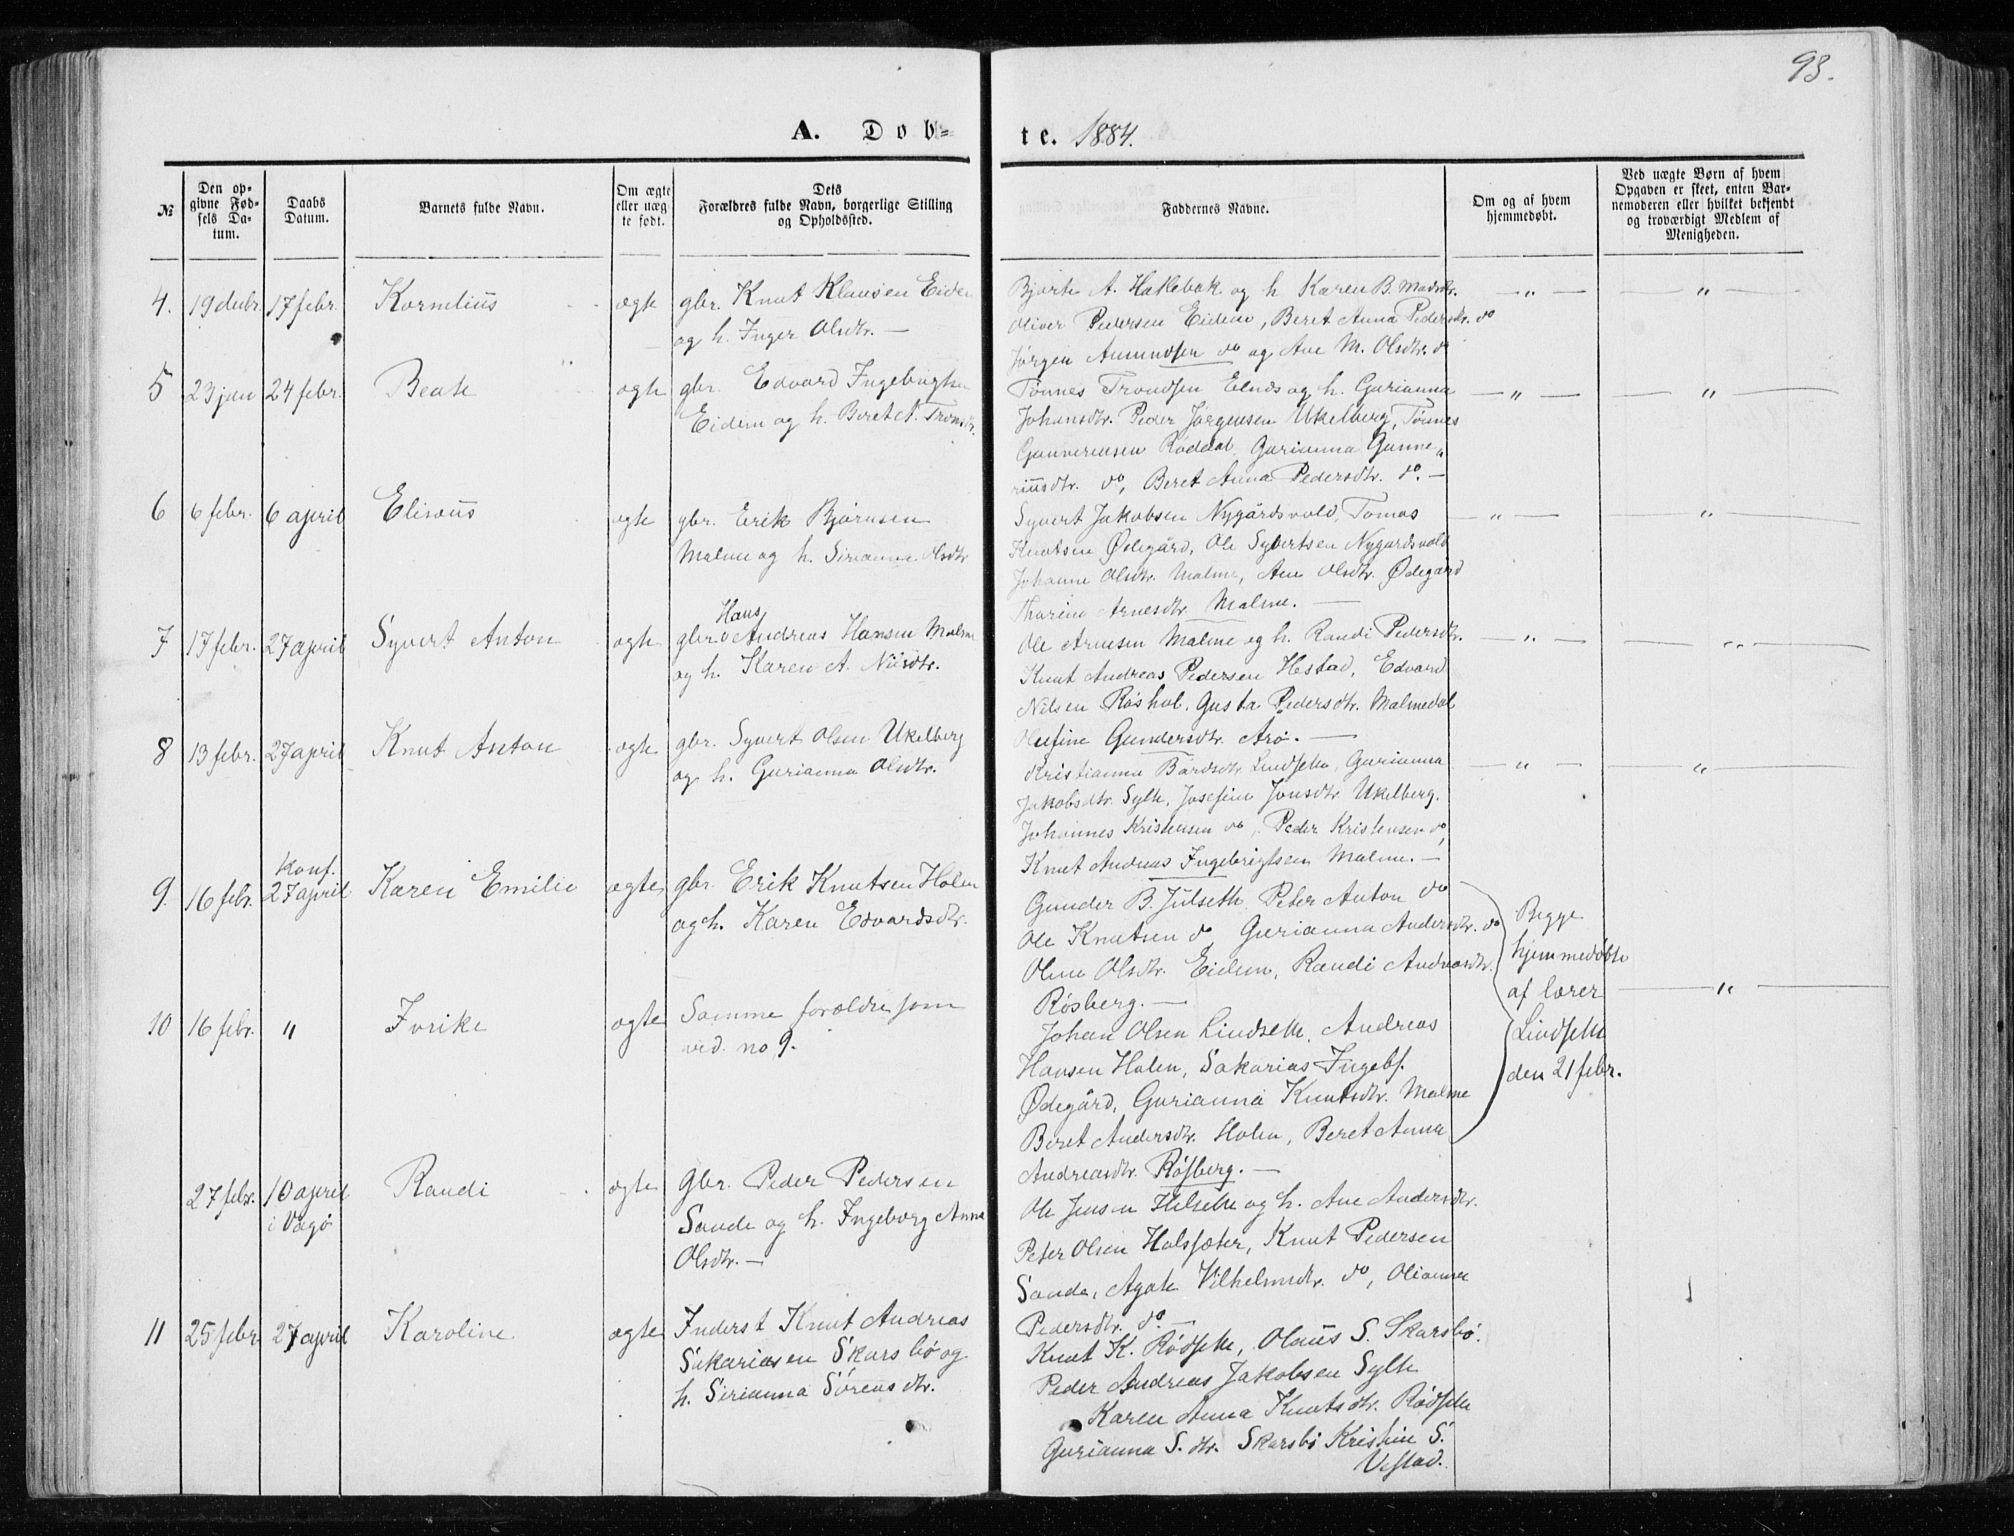 93.
A. Dob=
te. 1884.
№
Den op=
givne Fød=
sels Da=
tum.
Daabs
Datum.
Barnets fulde Navn.
Om ægte
eller uæg=
te født.
Dets
Forældres fulde Navn, borgerlige Stilling
og Opholdssted.
Faddernes Navne.
Om og af hvem
hjemmedøbt.
Ved uægte Børn af hvem
Opgaven er skeet, enten Bar=
nemoderen eller hvilket bekjendt
og troværdigt Medlem af
Menigheden.
4. 19 decbr. 17 febr. Kornelius ægte
gbr. Knut Klausen Eidem
og h. Inger Olsdtr. —
Bjarte A. Hakebak og h. Karen B. Madsdtr.
Oliver Pedersen Eidem, Beret Anna Pedersdtr. do
Jørgen Aumundsen do og Ane M. Olsdtr. do
— „ — — „ —
5 23 jan 24 febr. Beate ægte
gbr. Edvard Ingebrigtsen
Eidem og h. Beret A. Tronsdtr.
Tønnes Trondsen Elnes og h. Gurianna
Johansdtr. Peder Jørgensen Ukelberg, Tønnes
Gunneriusen Røddal, Gurianna Gunne„
riusdtr. do, Beret Anna Pedersdtr. do. —
— „ — — „ —
6 6 febr. 6 april Elisæus ægte
gbr. Erik Bjørnsen
Malme og h. Sirianna Olsdtr
Syvert Jakobsen Nygårdsvold, Tomas
Knutsen Ødegård, Ole Syvertsen Nygårdsvold
Johanne Olsdtr. Malme, Ane Olsdtr. Ødegård
Tharine Arnesdtr. Malme. —
— „ — — „ —
7 17 febr. 27 april Syvert Anton ægte
Hans
gbr. Andreas Hansen Malme
og h. Karen A. Nilsdtr.
Ole Arnesen Malme og h. Randi Pedersdtr.
Knut Andreas Pedersen Hestad, Edvard
Nilsen Røshol, Gusta Pedersdtr. Malmedal
Olufine Gundersdtr. Arø. —
— „ — — „ —
8 13 febr. 27 april Knut Anton ægte
gbr. Syvert Olsen Ukelberg
og h. Gurianna Olsdtr.
Kristianna Bårdsdtr. Lindseth, Gurianna
Jakobsdtr. Sylte, Josefine Jonsdtr. Ukelberg.
Johannes Kristensen do, Peder Kristensen do,
Knut Andreas Ingebrigtsen Malme. —
— „ — — „ —
Konf.
9. 16 febr. 27 april Karen Emilie ægte
gbr. Erik Knutsen Holen
og h. Karen Edvardsdtr.
Gunder B. Julseth, Peter Anton do
Ole Knutsen do, Gurianna Andersdtr. do
Oline Olsdtr. Eidem, Randi Andreasdtr.
Røsberg. —
Begge
hjemmedøbte
af lærer
Lindseth
den 21 febr.
— „ —
10 16 febr. „ Fvrike ægte
Samme forældre som
ved no 9.
Johan Olsen Lindseth, Andreas
Hansen Holen, Sakarias Ingebs.
Ødegård, Gurianna Knutsdtr. Malme
Beret Andersdtr. Holen, Beret Anna
Andreasdtr. Røsberg. —
27 febr. 10 april Randi ægte
i Vågø
gbr. Peder Pedersen
Sande og h. Ingeborg Anna
Olsdtr. —
Ole Jensen Helseth og h. Ane Andersdtr.
Peter Olsen Halsæter, Knut Pedersen
Sande, Agate Vilhelmsdtr. do, Olianna
Pedersdtr. do. —
11 25 febr 27 april Karoline ægte
Inderst Knut Andreas
Sakariasen Skarsbø og
h. Sirianna Sørensdtr.
Knut K. Rødseth, Olaus S. Skarsbø.
Peder Andreas Jakobsen Sylte
Karen Anna Knutsdtr. Rødseth
Gurianna S. dtr. Skarsbø Kristine S.
Vestad.